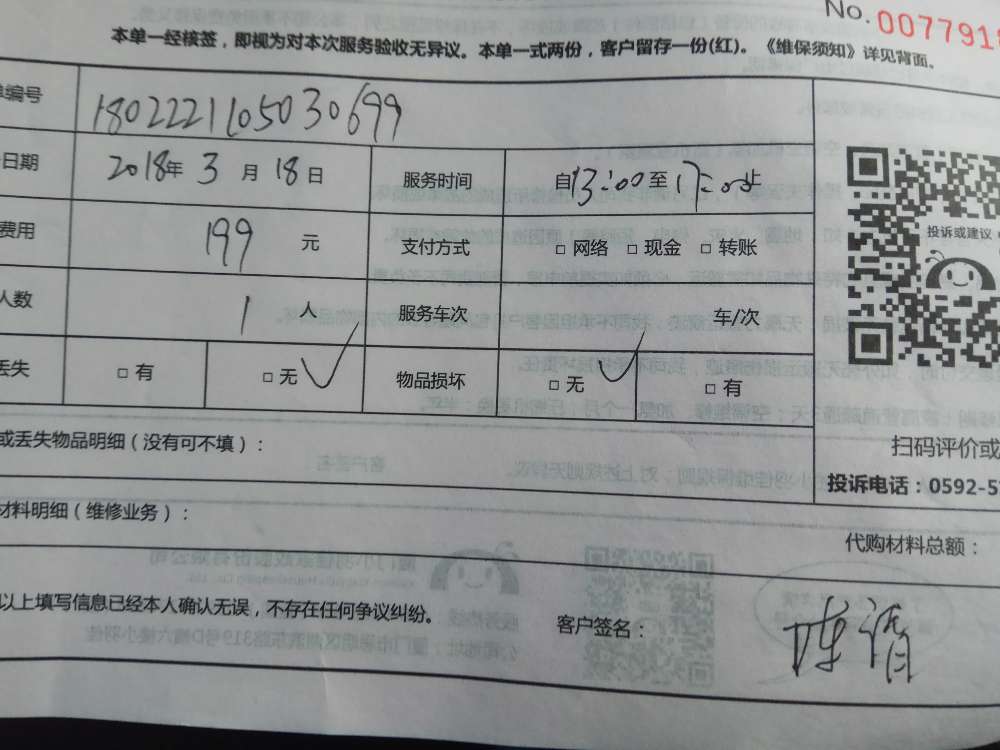 No. 0077918
本单一经核签，即视为对本次服务验收无异议。本单一式两份，客户留存一份(红)。《维保须知》详见背面。
编号 180222110503069９
日期 2018年 3 月 18 日 服务时间 自13:00至17:00止
费用 199 元 支付方式 □ 网络 □ 现金 □ 转账
人数 1 人 服务车次 车/次
丢失 □ 有 □ 无 ✓ 物品损坏 □ 无 ✓ □ 有
投诉或建议
扫码评价或
投诉电话：0592-5
或丢失物品明细（没有可不填）：
材料明细（维修业务）：
代购材料总额：
以上填写信息已经本人确认无误，不存在任何争议纠纷。
客户签名： 陈清